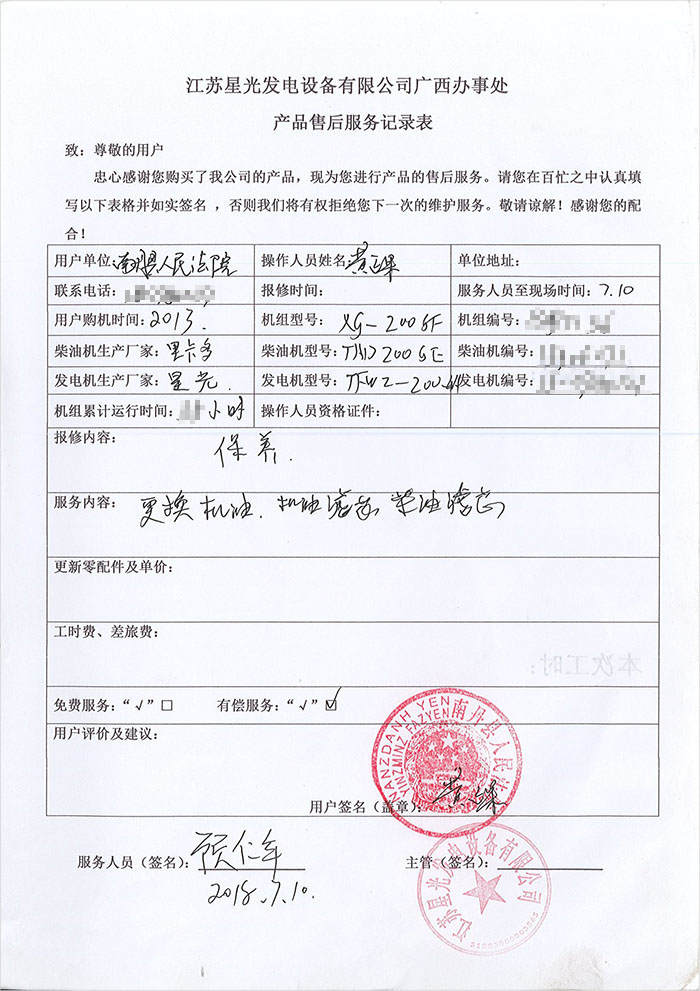 江苏星光发电设备有限公司广西办事处
产品售后服务记录表
致：尊敬的用户
忠心感谢您购买了我公司的产品，现为您进行产品的售后服务。请您在百忙之中认真填
写以下表格并如实签名 ，否则我们将有权拒绝您下一次的维护服务。敬请谅解！感谢您的配
合！
用户单位：人民法院 操作人员姓名：黄 单位地址：
联系电话： 报修时间： 服务人员至现场时间：7.10
用户购机时间：2013. 机组型号：XG-200GF 机组编号：
柴油机生产厂家：里卡多 柴油机型号： 柴油机编号：
发电机生产厂家：星光. 发电机型号： 发电机编号：
机组累计运行时间：小时 操作人员资格证件：
报修内容：保养.
服务内容：更换机油、机油滤芯 柴油滤芯
更新零配件及单价：
工时费、差旅费：
本次工时：
免费服务：“√”□ 有偿服务：“√”☑
用户评价及建议：
NANZDANH YEN
YINZMINZ FAZYEN
南丹县人民法
用户签名（盖章）：黄
服务人员（签名）：顾仁年
主管（签名）：
2018.7.10.
江苏星光发电设备有限公司